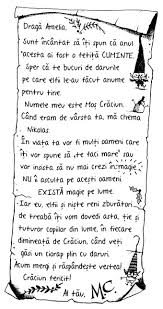 Dragă Amelia,
Sunt încântat să îți spun că anul
acesta ai fost o fetiță CUMINTE.
Sper că te bucuri de darurile
pe care elfii le-au făcut anume
pentru tine.
Numele meu este Moș Crăciun.
Când eram de vârsta ta, mă chema
Nikolas.
În viața ta vor fi mulți oameni care
îți vor spune să „te faci mare” sau
vor insista să nu mai crezi în magie.
NU îi asculta pe acești oameni.
EXISTĂ magie pe lume.
Iar eu, elfii și niște reni zburători
de treabă îți vom dovedi asta, ție și
tuturor copiilor din lume, în fiecare
dimineață de Crăciun, când veți
găsi un ciorap plin cu daruri.
Acum mergi și răspândește vestea!
Crăciun fericit!
Al tău, MC.